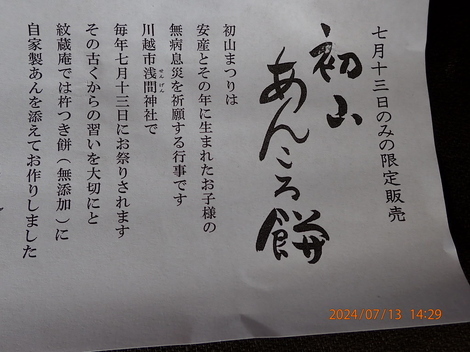 七月十三日のみの限定販売
初山
あんころ餅
初山まつりは
安産とその年に生まれたお子様の
無病息災を祈願する行事です
川越市浅間神社で
せんげん
毎年七月十三日にお祭りされます
その古くからの習いを大切にと
紋蔵庵では杵つき餅(無添加)に
自家製あんを添えてお作りしました
2024/07/13 14:29